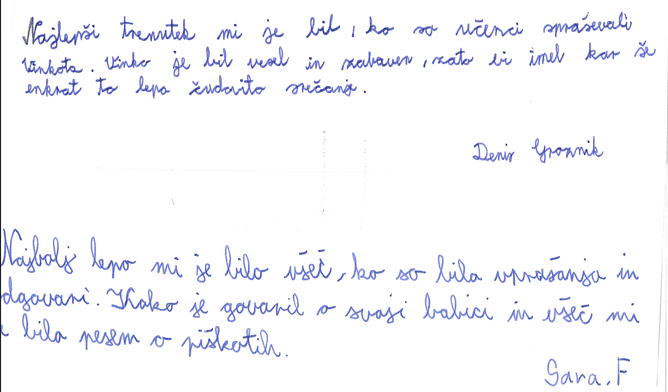 Najlepši trenutek mi je bil, ko so učenci spraševali
Vinkota. Vinko je bil vesel in zabaven, zato bi imel kar še
enkrat to lepo žudovito srečanje.
Denis Groznik
Najbolj lepo mi je bilo všeč, ko so bila vprašanja in
dgovori. Kako je govoril o svoji babici in všeč mi
bila pesem o piškotih.
Sara. F